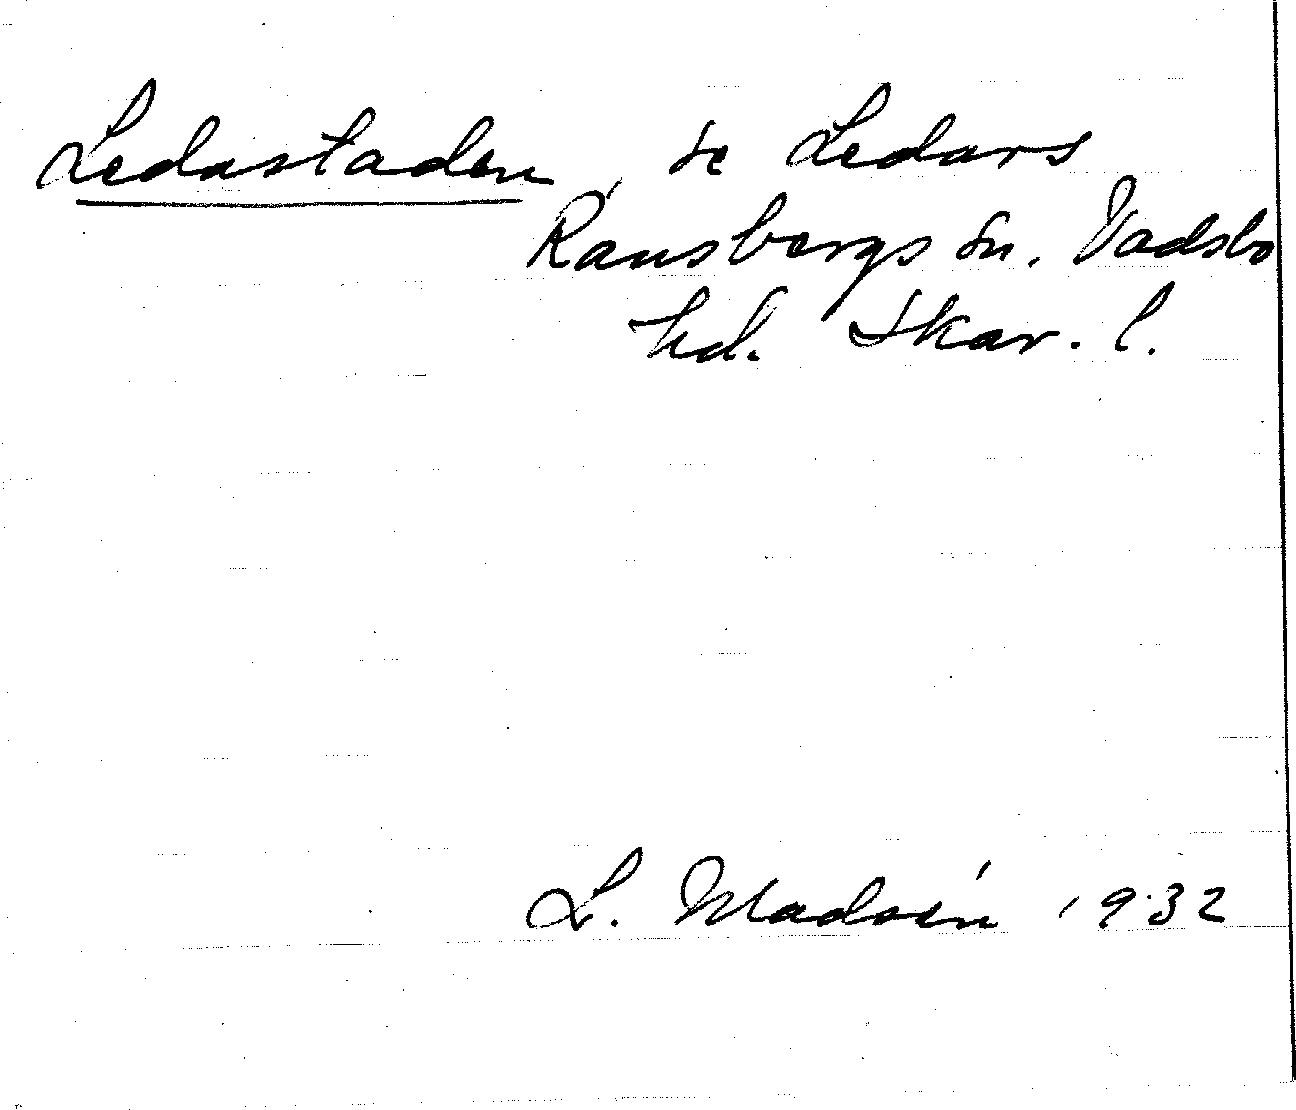 Ledastaden, se Ledars
Ransbergs sn. Vadsbo
hd. Skar. l.
L. Madsén 1932